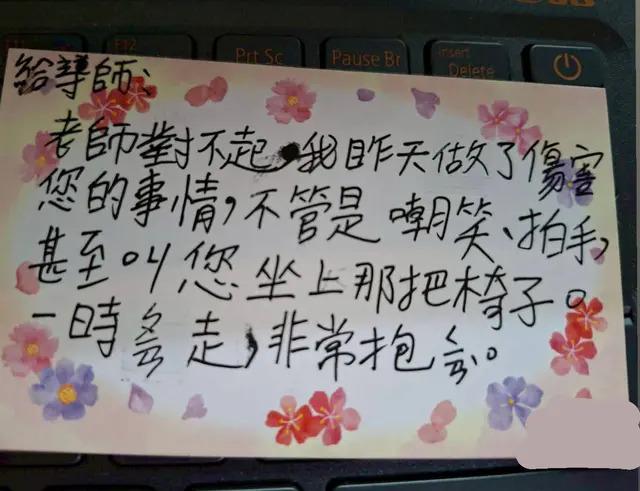 F12 Prt Sc Pause Br Insert
Delete
給導師、
老師對不起,我昨天做了傷害
您的事情,不管是嘲笑、拍手,
甚至叫您坐上那把椅子。
一時走,非常抱。